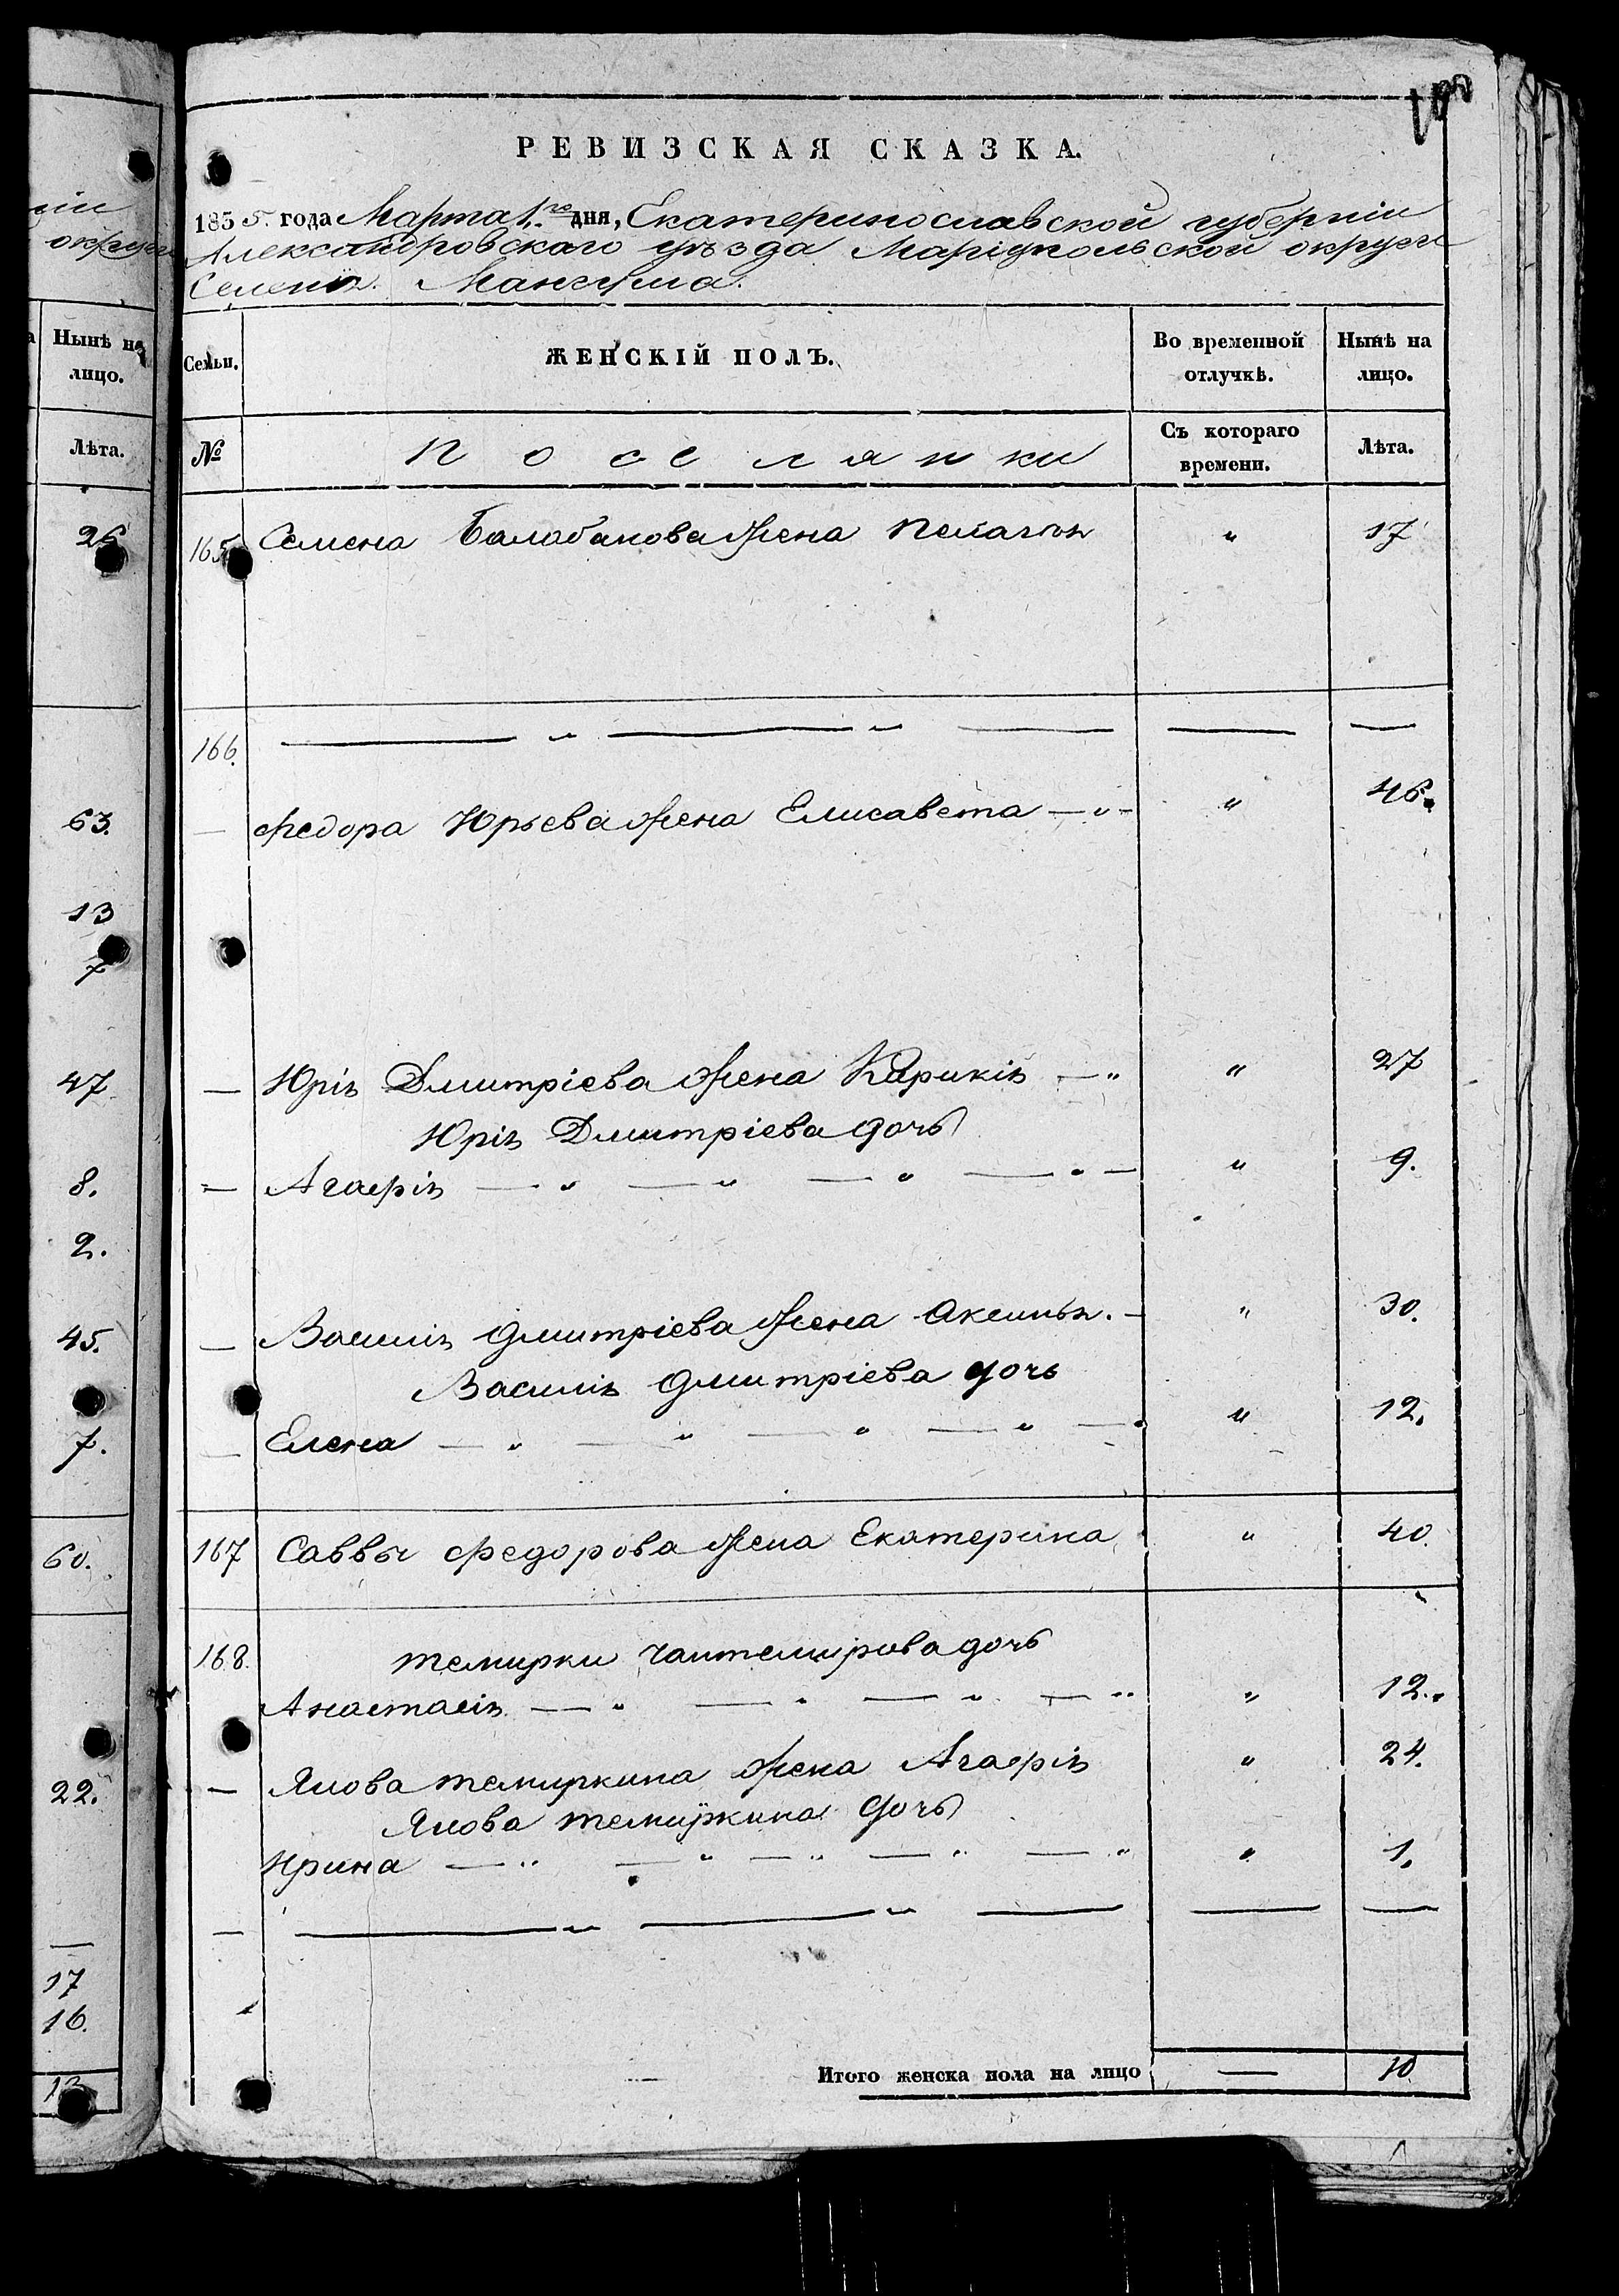 ціи
округи
а
Нынѣ на
лицо.
Лѣта.
26
63.
13
7
47
8.
2.
45.
7.
60.
22.
17
16.
13
РЕВИЗСКАЯ СКАЗКА.
1835. года Марта 1го дня, Екатеринославской губерніи
Александровскаго уѣзда Маріупольской округи
Селенія Мангуша.
Семьи. ЖЕНСКІЙ ПОЛЪ. Во временной отлучкѣ. Нынѣ на лицо.
№ Поселянки Съ котораго времени. Лѣта.
165 Семена Балабанова жена Пелагія " 17
166. — " — " — — —
— Федора Юрьева жена Елисавета — " — " 46.
— Юрія Дмитріева жена Кирикія — " " 27
Юрія Дмитріева дочь
— Агафія — " — " — " — " — " 9.
— Василія Дмитріева жена Аксинья. — " 30.
Василія Дмитріева дочь
— Елена — " — " — " — " — " 12.
167 Саввы Федорова жена Екатерина " 40.
168. Темирки Чантемирова дочь
Анастасія — " — " — " — " " 12.
— Якова Темиркина жена Агафія " 24.
Якова Темиркина дочь
Ирина — " — " — " — " — " " 1.
— — " — " — — —
Итого женска пола на лицо — 10